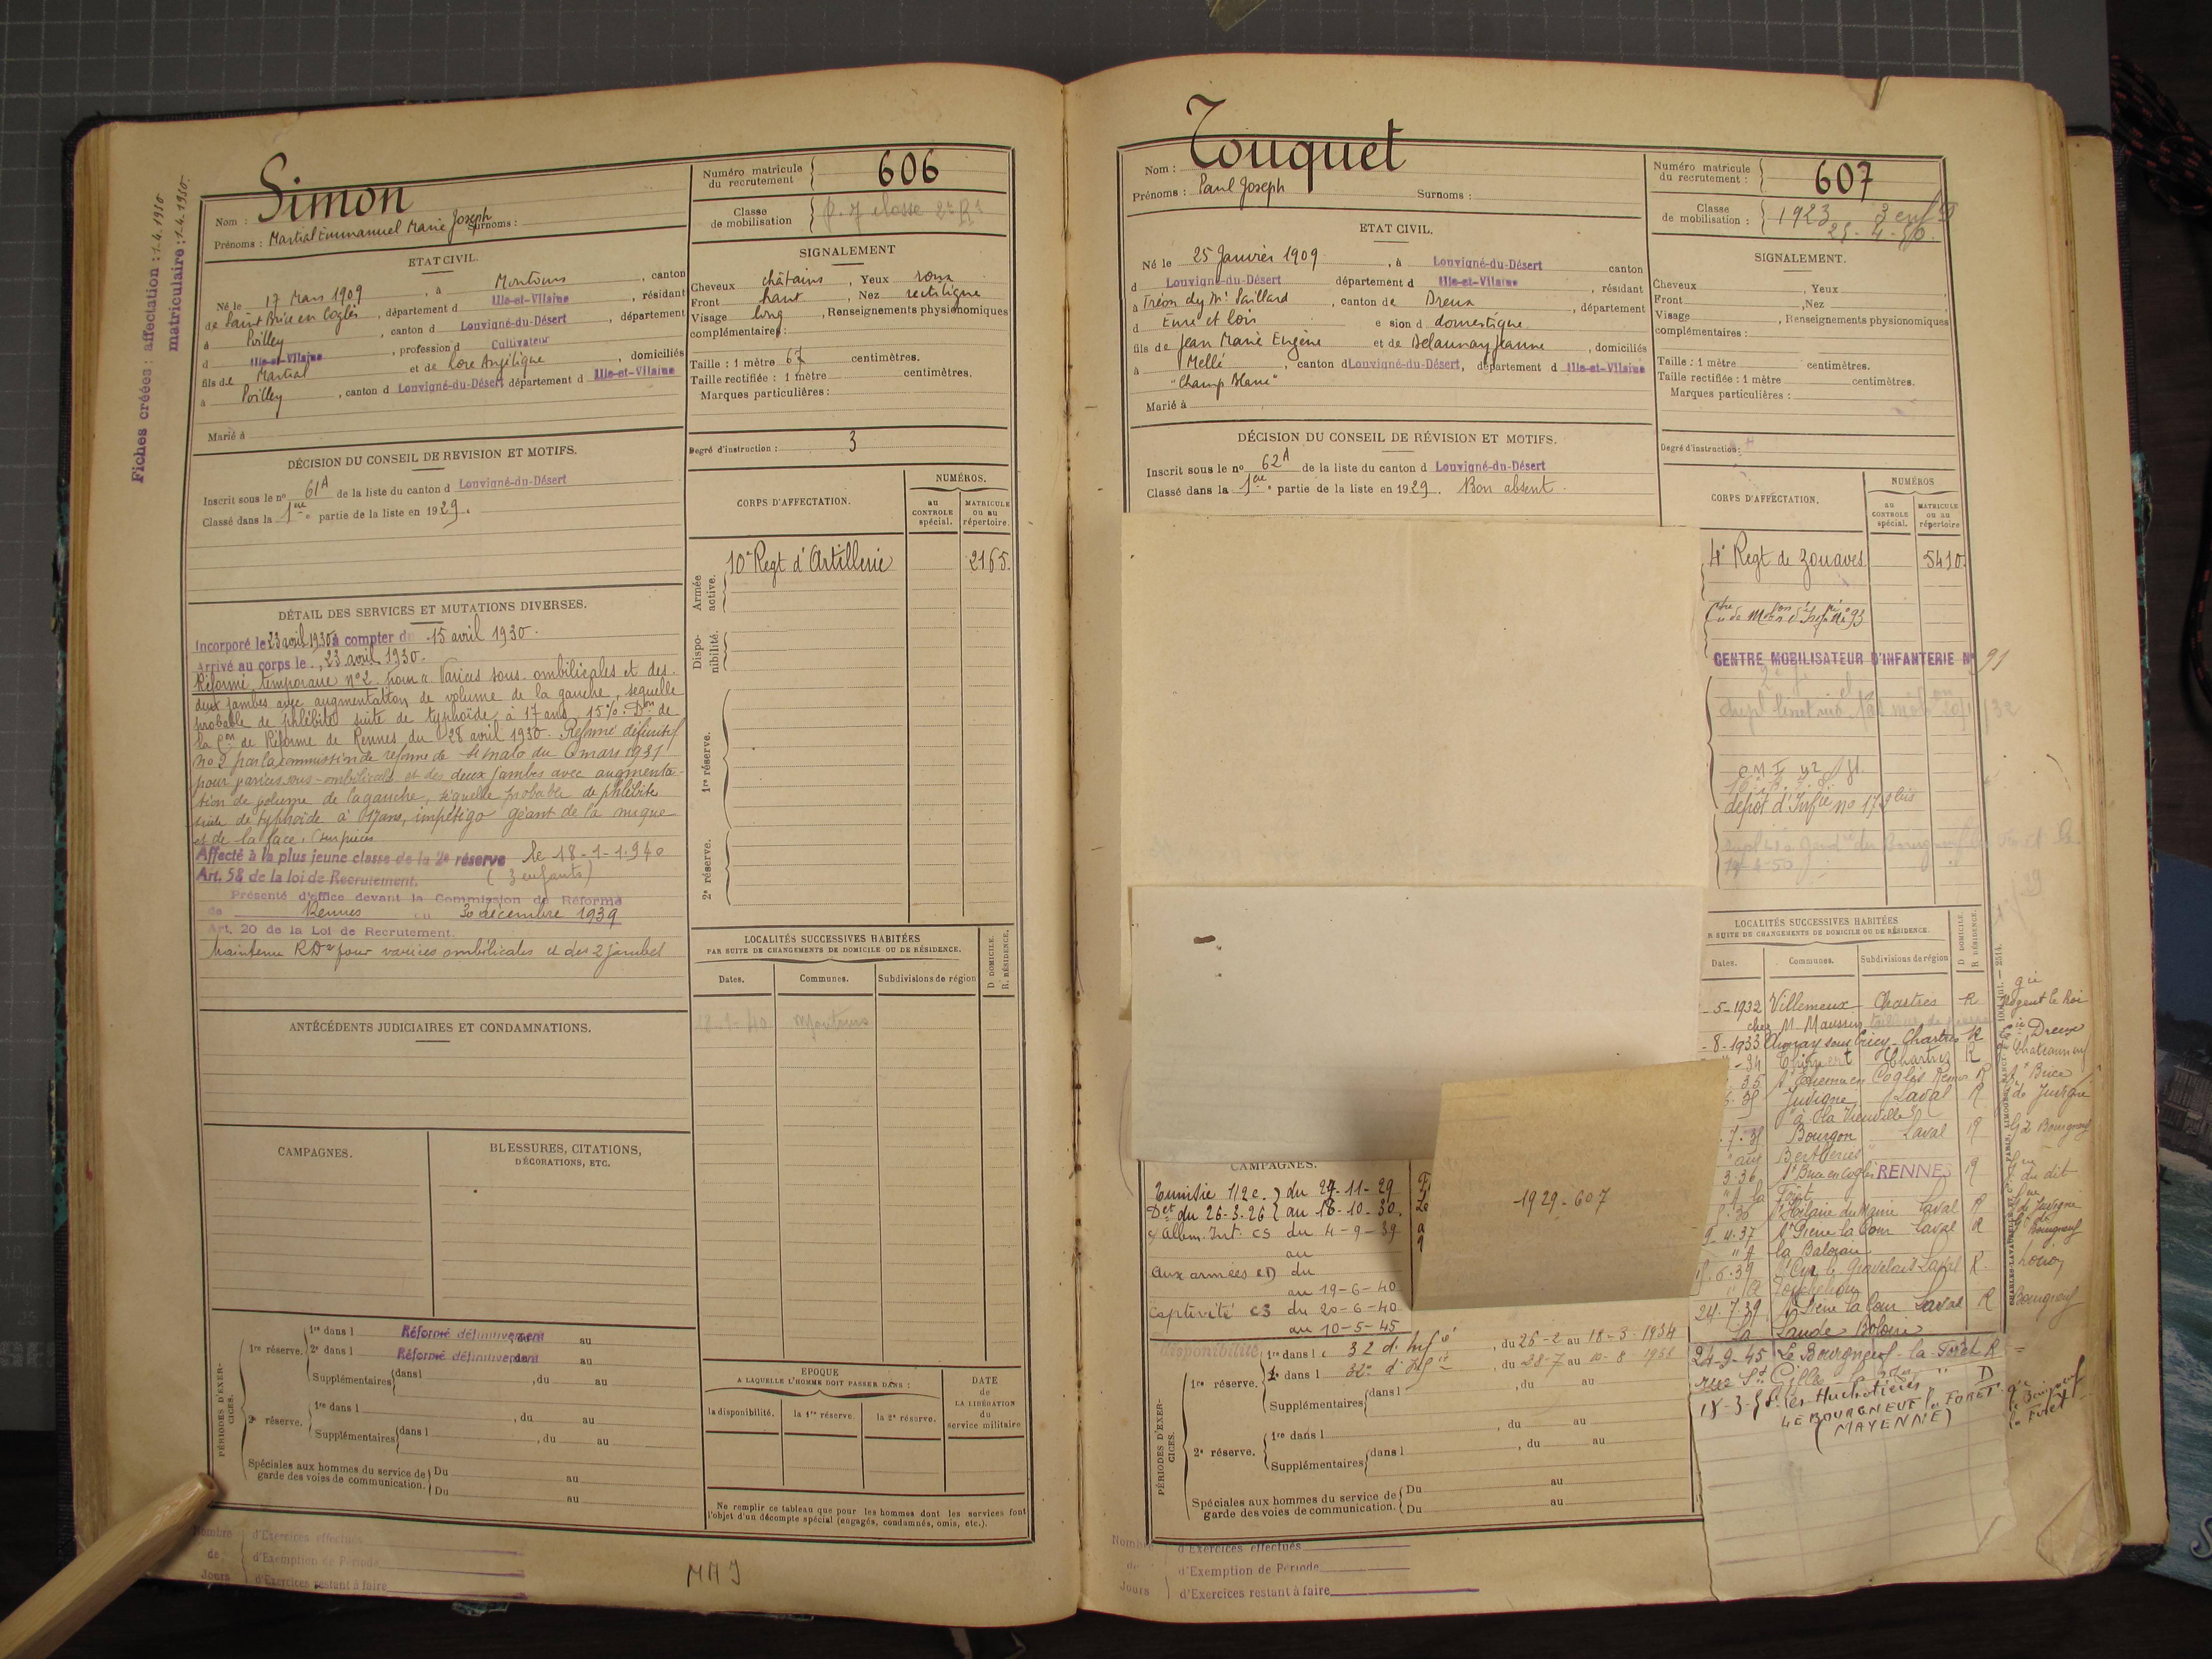 Fiches créées : affectation : 1.4.1930
matriculaire : 1.4.1930.
Nom : Simon
Prénoms : Martial Emmanuel Marie Joseph Surnoms :
Numéro matricule du recrutement 606
Classe de mobilisation
ETAT CIVIL.
Né le 17 Mars 1909, à Montours, canton
de Saint Brice en Coglès, département d Ille-et-Vilaine, résidant
à Poilley, canton d Louvigné-du-Désert, département
d Ille-et-Vilaine, profession d Cultivateur
fils de Martial et de Lore Angélique, domiciliés
à Poilley, canton d Louvigné-du-Désert département d Ille-et-Vilaine
Marié à
SIGNALEMENT
Cheveux châtains, Yeux roux
Front haut, Nez rectiligne
Visage long, Renseignements physionomiques
complémentaires :
Taille : 1 mètre 67 centimètres.
Taille rectifiée : 1 mètre centimètres.
Marques particulières :
Degré d'instruction : 3
DÉCISION DU CONSEIL DE REVISION ET MOTIFS.
Inscrit sous le nº 61A de la liste du canton d Louvigné-du-Désert
Classé dans la 1ère partie de la liste en 1929.
CORPS D'AFFECTATION.
NUMÉROS.
au CONTROLE spécial.
MATRICULE ou au répertoire.
Armée active.
10e Regt d'Artillerie 2165.
Disponibilité.
1re réserve.
2e réserve.
DÉTAIL DES SERVICES ET MUTATIONS DIVERSES.
Incorporé le 23 avril 1930 à compter du 15 avril 1930.
Arrivé au corps le 23 avril 1930.
Réformé temporaire nº2 pour « Varices sous-ombilicales et des
deux jambes avec augmentation de volume de la gauche, séquelle
probable de phlébite suite de typhoïde à 17 ans. 15%. Don de
la Con de Réforme de Rennes du 28 avril 1930. Réformé définitif
nº 2 par la commission de réforme de St malo du 6 mars 1931
pour varices sous-ombilicales et des deux jambes avec augmenta-
tion de volume de la gauche, séquelle probable de phlébite
suite de typhoïde à 17 ans, impétigo géant de la nuque
et de la face. (sur pièces
Affecté à la plus jeune classe de la 2e réserve le 18-1-1940
Art. 58 de la loi de Recrutement. (3 enfants)
Présenté d'office devant la Commission de Réforme
de Rennes du 30 décembre 1939
Art. 20 de la Loi de Recrutement
Maintenu RD2 pour varices ombilicales et des 2 jambes
ANTÉCÉDENTS JUDICIAIRES ET CONDAMNATIONS.
LOCALITÉS SUCCESSIVES HABITÉES
PAR SUITE DE CHANGEMENTS DE DOMICILE OU DE RÉSIDENCE.
Dates. Communes. Subdivisions de région
D DOMICILE. R. RÉSIDENCE.
Montours
CAMPAGNES.
BLESSURES, CITATIONS, DÉCORATIONS, ETC.
PÉRIODES D'EXERCICES.
1re réserve. 1re dans l Réformé définitivement au
2e dans l Réformé définitivement au
Supplémentaires dans l , du au
2e réserve. 1re dans l , du au
Supplémentaires dans l , du au
Spéciales aux hommes du service de garde des voies de communication. Du au
Du au
EPOQUE
A LAQUELLE L'HOMME DOIT PASSER DANS :
la disponibilité. la 1re réserve. la 2e réserve.
DATE de LA LIBÉRATION du service militaire
Ne remplir ce tableau que pour les hommes dont les services font
l'objet d'un décompte spécial (engagés, condamnés, omis, etc.).
Nombre de Jours
d'Exercices effectués
d'Exemption de Période
d'Exercices restant à faire
Nom : Touquet
Prénoms : Paul Joseph Surnoms :
Numéro matricule du recrutement : 607
Classe de mobilisation : 1923
ETAT CIVIL.
Né le 25 Janvier 1909, à Louvigné-du-Désert canton
d Louvigné-du-Désert département d Ille-et-Vilaine, résidant
à Tréon, canton de Dreux, département
d Eure et Loir e sion d domestique
fils de Jean Marie Eugène et de Delaunay Jeanne, domiciliés
à Mellé, canton d Louvigné-du-Désert, département d Ille-et-Vilaine
"Champ Blanc"
Marié à
SIGNALEMENT.
Cheveux , Yeux
Front , Nez
Visage , Renseignements physionomiques
complémentaires :
Taille : 1 mètre centimètres.
Taille rectifiée : 1 mètre centimètres.
Marques particulières :
Degré d'instruction :
DÉCISION DU CONSEIL DE RÉVISION ET MOTIFS.
Inscrit sous le nº 62A de la liste du canton d Louvigné-du-Désert
Classé dans la 1ère partie de la liste en 1929. Bon absent.
CORPS D'AFFECTATION.
NUMÉROS
au CONTROLE spécial.
MATRICULE ou au répertoire
4e Regt de Zouaves 5410.
CENTRE MOBILISATEUR D'INFANTERIE Nº 91
dépôt d'Infie no 172 bis
LOCALITÉS SUCCESSIVES HABITÉES
R SUITE DE CHANGEMENTS DE DOMICILE OU DE RÉSIDENCE.
Dates. Communes. Subdivisions de région
D DOMICILE. R RÉSIDENCE.
5-1932 Villemeux Chartres R
8-1933 Chartres R
34 Chartres R
35 Coglès Rennes R
Juvigné Laval R
Bourgon Laval R
3.36 St Brice en Coglès RENNES R
St Hilaire du Maine Laval R
4.37 St Pierre la Cour Laval R
6.39 St Cyr le Gravelais Laval R.
24-7-39 St Pierre la Cour Laval R
24-9-45 Le Bourgneuf-la-Forêt R
LE BOURGNEUF la FORET
(MAYENNE)
1929-607
CAMPAGNES.
Tunisie 1/2 c. du 27-11-29
Det du 26-3-26 au 18-10-30.
Allem. Int. CS du 4-9-39
au
Aux armées CD du
au 19-6-40
Captivité CS du 20-6-40
au 10-5-45
PÉRIODES D'EXERCICES.
disponibilité
1re réserve. 1re dans l 32 d'Infie, du 26-2 au 18-3-1934
dans l 32e d'Infie, du 28-7 au 10-8-1938
Supplémentaires dans l , du au
, du au
2e réserve. 1re dans l , du au
Supplémentaires dans l , du au
Spéciales aux hommes du service de garde des voies de communication. Du au
Du au
Nombre de Jours
d'Exercices effectués
d'Exemption de Période
d'Exercices restant à faire